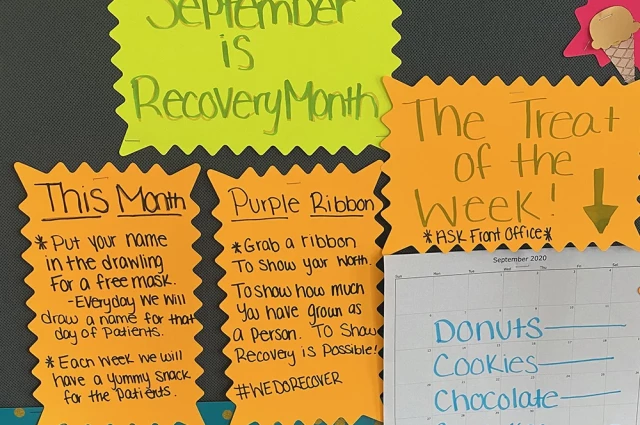 September
is
Recovery Month
The Treat
of the
Week!
*Ask Front Office*
This Month
*Put your name
in the drawling
For a free mask.
-Everyday we will
draw a name for that
day of Patients.
*Each week we will
have a yummy snack
for the Patients.
Purple Ribbon
*Grab a ribbon
To show your worth
To show how much
You have grown as
a Person. To Show
Recovery is Possible!
#WEDORECOVER
September 2020
Donuts
Cookies
Chocolate